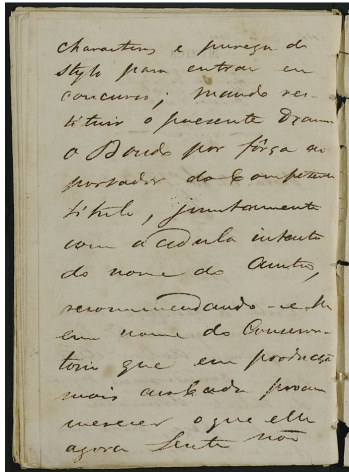 characteres e pureza de
stylo para entrar em
concurso; mando res-
tituir o presente Drama
o Bardo por fôrça ao
portador do competente
titulo, juntamente
com a cedula intacta
do nome do Author,
recommendando-se-lhe
em nome do Conserva-
torio que em producção
mais acabada procure
merecer o que elle
agora sente não